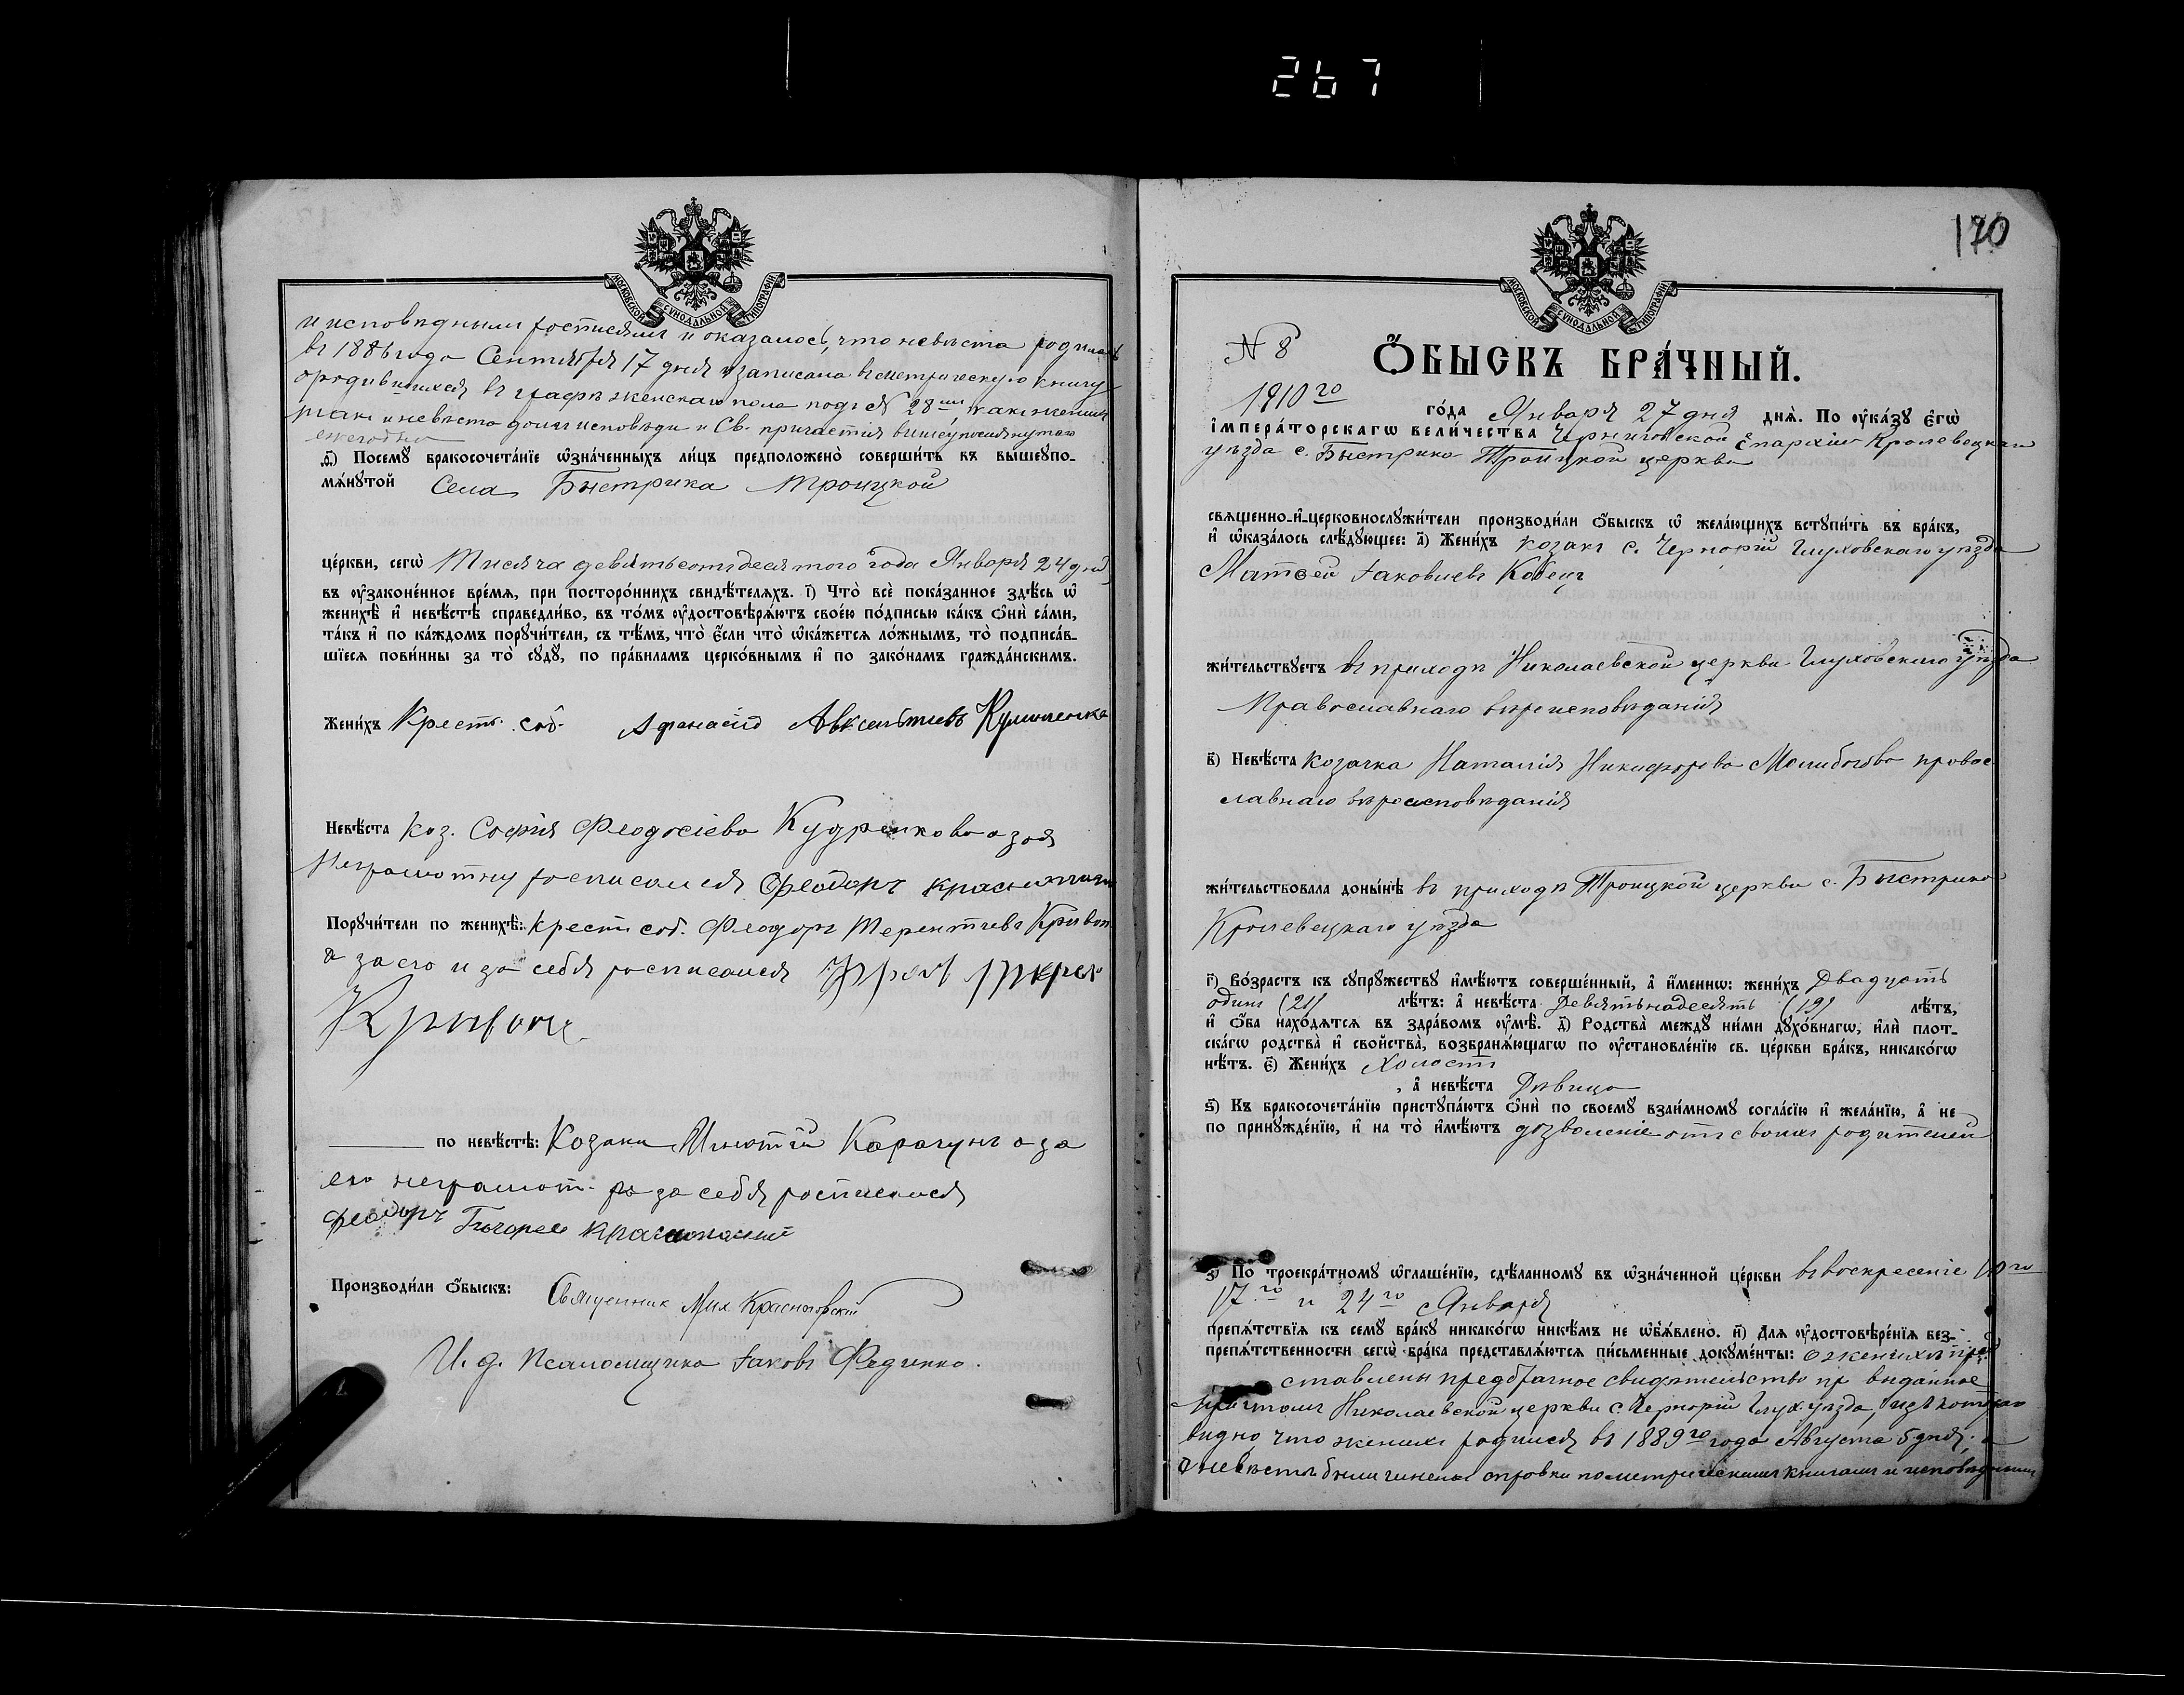 267
МОСКОВСКОЙ СѴНОДАЛЬНОЙ ТИПОГРАФІИ
и исповѣдными росписями и оказалось, что невѣста родилась
въ 1886 года Сентября 17 дня и записана въ метрическую книгу
о родившихся въ графѣ женскаго пола подъ № 28мъ, какъ женихъ
такъ и невѣста были исповѣди и Св. причастія
ежегодно
ѳ҃) Посемꙋ̀ бракосочета́нїе ѡ҆зна́ченныхъ ли́цъ предположено̀ соверши́ть въ вы́шеꙋпо-
мѧ́нꙋтой Села Быстрика Троицкой
це́ркви, сегѡ̀ Тысяча девятьсотъ десятого года Января 24 дня
въ ᲂу҆зако́ненное вре́мѧ, при посторо́ннихъ свидѣ́телѧхъ. і҃) Что̀ всѐ пока́занное здѣ́сь ѡ҆
женихѣ̀ и҆ невѣ́стѣ справедли́во, въ то́мъ ᲂу҆достовѣрѧ́ютъ свое́ю по́дписью ка́къ ѻ҆нѝ са́ми,
та́къ и҆ по ка́ждомъ порꙋчи́тели, съ тѣ́мъ, что̀ є҆́сли что̀ ѡ҆ка́жетсѧ ло́жнымъ, то̀ подписа́в-
шїесѧ пови́нны за то̀ сꙋдꙋ̀, по пра́виламъ церко́внымъ и҆ по зако́намъ гражда́нскимъ.
Жени́хъ Крест. соб. Афанасій Авксентиевъ Кулиненко
Невѣ́ста Коз. Софія Феодосіева Кудренкова а за ея
неграмотну росписался Феодоръ
Порꙋчи́тели по женихѣ̀: Крест. соб. Феодоръ Терентіевъ
а за его и за себя росписался
по невѣ́стѣ: Козаки Карагунъ а за
его неграмот. за себя росписался
Феодоръ
Производи́ли ѻ҆́быскъ: Священник Мих Красногорскій
И. д. псаломщика Іаковъ Феденко.
170
МОСКОВСКОЙ СѴНОДАЛЬНОЙ ТИПОГРАФІИ
№ 8
Ѻ҆́БЫСКЪ БРА́ЧНЫЙ.
1910го го́да Января 27 дня днѧ̀. По ᲂу҆ка́зꙋ є҆гѡ̀
і҆мпера́торскагѡ вели́чества Черниговской Епархіи Кролевецкаго
уѣзда с. Быстрика Троицкой церкви
свѧще́нно-и҆-церковнослꙋжи́тели производи́ли ѻ҆́быскъ ѡ҆ жела́ющихъ встꙋпи́ть въ бра́къ,
и҆ ѡ҆каза́лось слѣ́дꙋющее: а҃) Жени́хъ козакъ с. Черторіи Глуховскаго уѣзда
Матвей Іаковлевъ Кобецъ
жи́тельствꙋетъ въ приходѣ Николаевской церкви Глуховского уѣзда
Православнаго вѣроисповѣданія
в҃) Невѣ́ста козачка Наталія Никифорова Молибогова правос
лавнаго вѣроисповѣданія
жи́тельствовала доны́нѣ въ приходѣ Троицкой церкви с. Быстрика
Кролевецкаго уѣзда
г҃) Во́зрастъ къ сꙋпрꙋ́жествꙋ и҆мѣ́ютъ соверше́нный, а҆ и҆́меннѡ: жени́хъ Двадцать
одинъ (21) лѣ́тъ: а҆ невѣ́ста Девятьнадесять (19) лѣ́тъ,
и҆ ѻ҆́ба нахо́дѧтсѧ въ здра́вомъ ᲂу҆мѣ̀. д҃) Родства̀ междꙋ̀ ни́ми дꙋхо́внагѡ, и҆лѝ плот-
ска́гѡ родства̀ и҆ свойства̀, возбранѧ́ющагѡ по ᲂу҆становле́нїю св. це́ркви бра́къ, никако́гѡ
нѣ́тъ. є҃) Жени́хъ Холостъ
, а҆ невѣ́ста Дѣвица
ѕ҃) Къ бракосочета́нїю пристꙋпа́ютъ ѻ҆нѝ по своемꙋ̀ взаи́мномꙋ согла́сїю и҆ жела́нїю, а҆ не
по принꙋжде́нїю, и҆ на то̀ и҆мѣ́ютъ дозволеніе отъ своихъ родителей
з҃) По троекра́тномꙋ ѡ҆глаше́нїю, сдѣ́ланномꙋ въ ѡ҆зна́ченной це́ркви въ воскресеніе 10го
17го и 24го Января
препѧ́тствїѧ къ семꙋ̀ бра́кꙋ никако́гѡ никѣ́мъ не ѡ҆б̾ѧ́влено. и҃) Длѧ̀ ᲂу҆достовѣре́нїѧ без-
препѧ́тственности сегѡ̀ бра́ка представлѧ́ютсѧ пи́сьменные докꙋме́нты: о женихѣ пред
ставлены предбрачное свидѣтельство пр выданное
причтомъ Николаевской церкви с. Черторіи Глух. уѣзда, изъ котораго
видно, что женихъ родился въ 1889го года Августа 5 дня, а
о невѣстѣ были чинены справки по метрическимъ книгамъ и исповѣднымъ